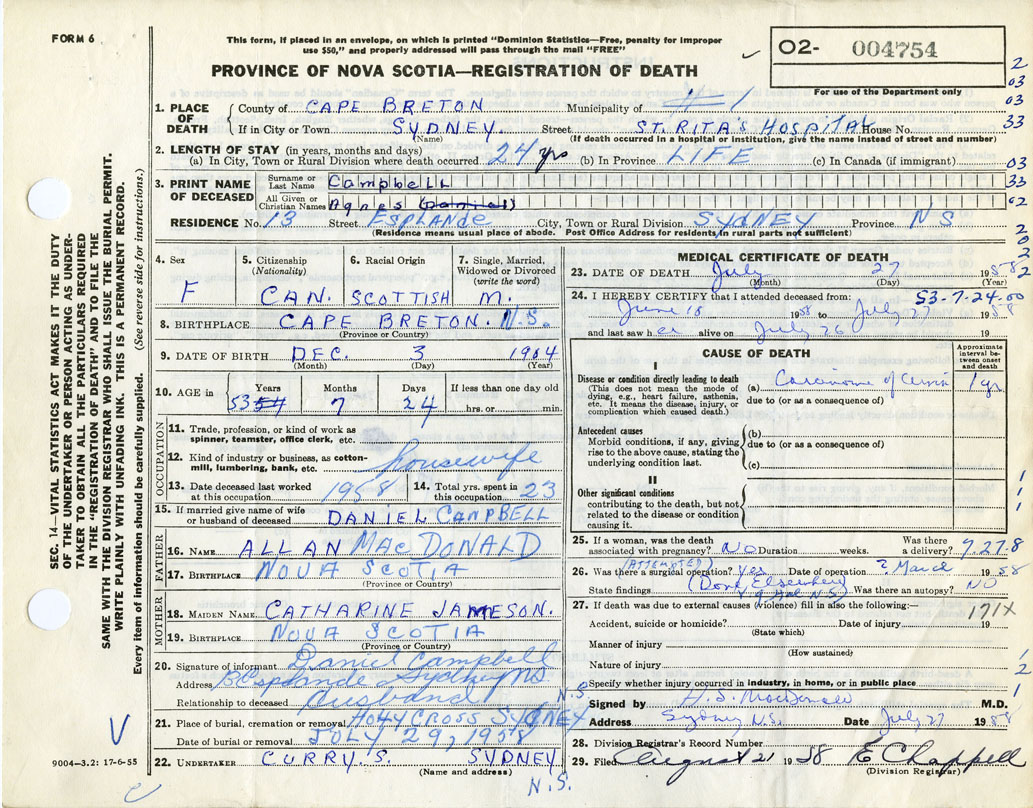 FORM 6
This form, if placed in an envelope, on which is printed "Dominion Statistics—Free, penalty for improper
use $50," and properly addressed will pass through the mail "FREE"
O2- 004754
For use of the Department only
PROVINCE OF NOVA SCOTIA—REGISTRATION OF DEATH
1. PLACE OF DEATH County of CAPE BRETON Municipality of # 1
If in City or Town SYDNEY. Street ST. RITA'S HOSPITAL House No.
(Name) (If death occurred in a hospital or institution, give the name instead of street and number)
2. LENGTH OF STAY (in years, months and days)
(a) In City, Town or Rural Division where death occurred 24 yrs (b) In Province LIFE (c) In Canada (if immigrant)
3. PRINT NAME OF DECEASED Surname or Last Name CampbeLL
All Given or Christian Names Agnes (Daniel)
RESIDENCE No. 13 Street Esplande City, Town or Rural Division SYDNEY Province NS
(Residence means usual place of abode. Post Office Address for residents in rural parts not sufficient)
4. Sex F
5. Citizenship (Nationality) CAN.
6. Racial Origin SCOTTISH
7. Single, Married, Widowed or Divorced (write the word) M.
8. BIRTHPLACE CAPE BRETON. N.S.
(Province or Country)
9. DATE OF BIRTH DEC. 3 1904
(Month) (Day) (Year)
10. AGE in Years Months Days If less than one day old
53 54 7 24 hrs. or min.
OCCUPATION
11. Trade, profession, or kind of work as spinner, teamster, office clerk, etc.
12. Kind of industry or business, as cotton-mill, lumbering, bank, etc. housewife
13. Date deceased last worked at this occupation 1958 14. Total yrs. spent in this occupation 23
15. If married give name of wife or husband of deceased DANIEL CAMPBELL
FATHER
16. NAME ALLAN MacDONALD
17. BIRTHPLACE NOVA SCOTIA
(Province or Country)
MOTHER
18. MAIDEN NAME CATHARINE JAMESON.
19. BIRTHPLACE NOVA SCOTIA
(Province or Country)
20. Signature of informant Daniel Campbell
Address Esplande Sydney NS
Relationship to deceased Husband
21. Place of burial, cremation or removal HOLY CROSS SYDNEY N.S.
Date of burial or removal JULY 29, 1958
22. UNDERTAKER CURRY.S. SYDNEY N.S.
(Name and address)
9004—3.2: 17-6-55
MEDICAL CERTIFICATE OF DEATH
23. DATE OF DEATH July 27 1958
(Month) (Day) (Year)
24. I HEREBY CERTIFY that I attended deceased from: 53-7-24.00
June 18 1958 to July 27 1958
and last saw her alive on July 26 19
CAUSE OF DEATH
Approximate interval between onset and death
I
Disease or condition directly leading to death (a) Carcinoma of Cervix 1 yr
(This does not mean the mode of dying, e.g., heart failure, asthenia, etc. It means the disease, injury, or complication which caused death.) due to (or as a consequence of)
Antecedent causes (b)
Morbid conditions, if any, giving rise to the above cause, stating the underlying condition last. due to (or as a consequence of)
(c)
II
Other significant conditions
contributing to the death, but not related to the disease or condition causing it.
25. If a woman, was the death associated with pregnancy? NO Duration weeks. Was there a delivery? 9.27.8
(ATTEMPTED)
26. Was there a surgical operation? Yes Date of operation ? March 1958
State findings (Done Elsewhere) Was there an autopsy? NO
27. If death was due to external causes (violence) fill in also the following:—
171X
Accident, suicide or homicide? Date of injury 19
(State which)
Manner of injury
(How sustained)
Nature of injury
Specify whether injury occurred in industry, in home, or in public place
Signed by H. S. MacDonald M.D.
Address Sydney N.S. Date July 27 1958
28. Division Registrar's Record Number
29. Filed August 21 1958 E Chappell
(Division Registrar)
SEC. 14—VITAL STATISTICS ACT MAKES IT THE DUTY
OF THE UNDERTAKER OR PERSON ACTING AS UNDER-
TAKER TO OBTAIN ALL THE PARTICULARS REQUIRED
IN THE "REGISTRATION OF DEATH" AND TO FILE THE
SAME WITH THE DIVISION REGISTRAR WHO SHALL ISSUE THE BURIAL PERMIT.
WRITE PLAINLY WITH UNFADING INK. THIS IS A PERMANENT RECORD.
Every item of information should be carefully supplied. (See reverse side for instructions.)
2
03
03
33
03
33
02
2
0
2
2
1
1
1
1
2
1